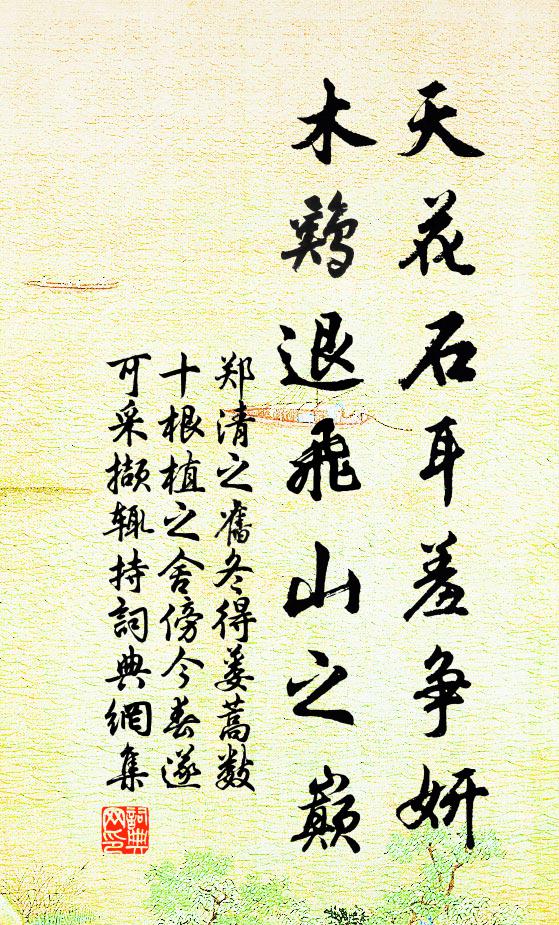 天花石耳羞争妍
木鷄退飛山之巅
郑清之舊冬得蒌蒿数
十根植之舍傍今春遂
可采撷辄持詞典網集
詞典网印